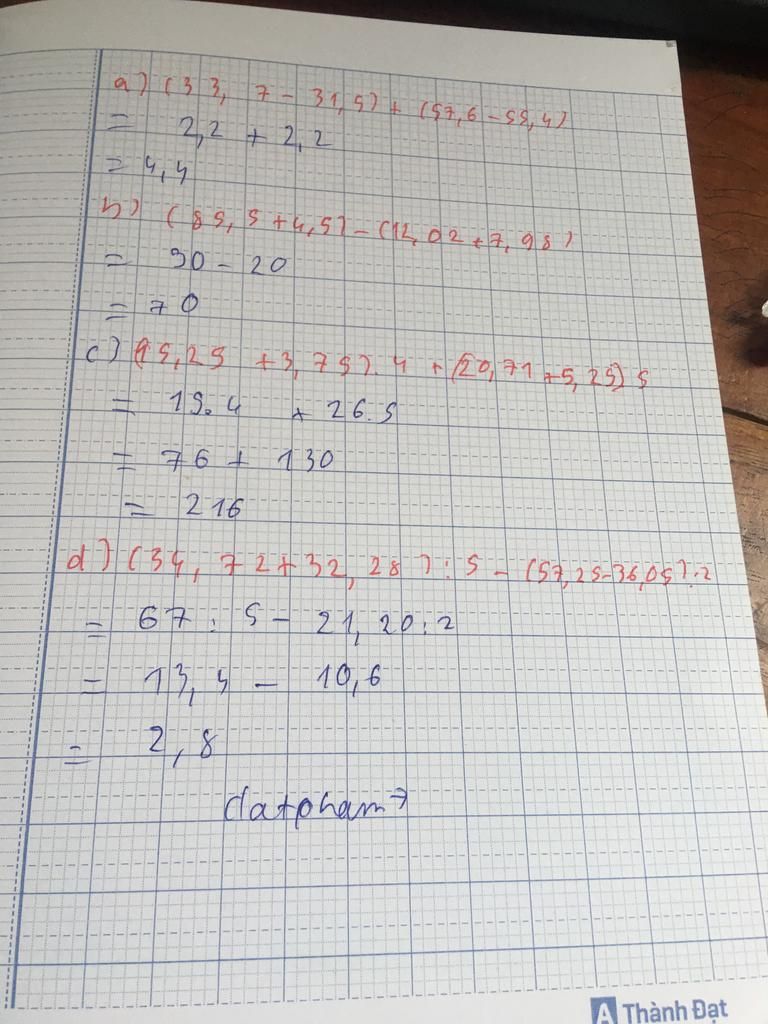 a) (33,7 - 31,5) + (57,6 - 55,4)
= 2,2 + 2,2
= 4,4
b) (85,5 + 4,5) - (12,02 + 7,98)
= 90 - 20
= 70
c) (15,25 + 3,75).4 + (20,71 + 5,25) 5
= 19.4 + 26.5
= 76 + 130
= 216
d) (34,72 + 32,28) : 5 - (57,25 - 36,05) : 2
= 67 : 5 - 21,20 : 2
= 13,4 - 10,6
= 2,8
datpham7
A Thành Đạt